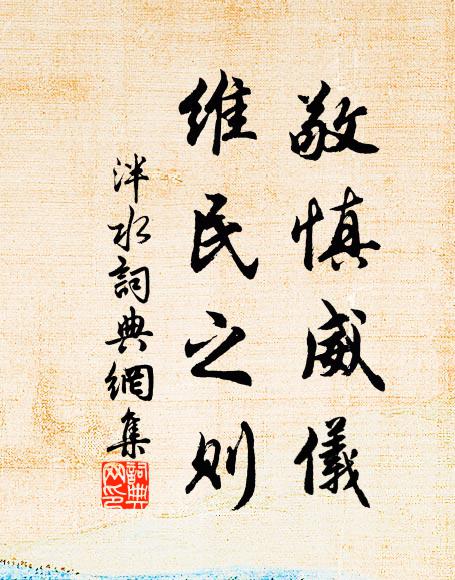 敬慎威儀
維民之則
泮水詞典網集
詞典
网印